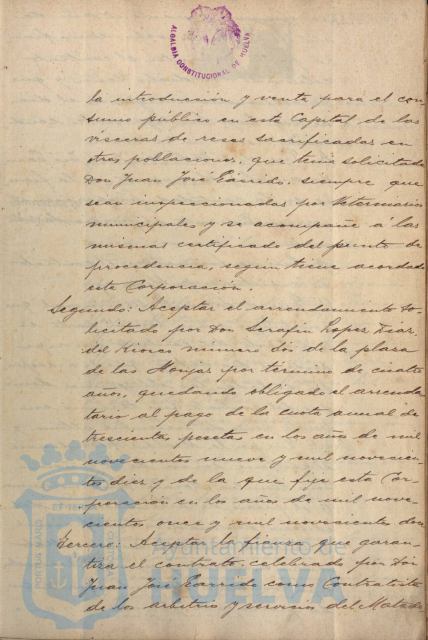 ALCALDIA CONSTITUCIONAL DE HUELVA
la introducción y venta para el con-
sumo público en esta Capital de las
vísceras de reses sacrificadas en
otras poblaciones, que tenia solicitado
Don Juan José Garrido, siempre que
sean inspeccionadas por Veterinarios
municipales y se acompañe á las
mismas certificado del punto de
procedencia, segun tiene acordado
esta Corporación.
Segundo: Aceptar el arrendamiento so-
licitado por Don Serafin Lopez Diaz,
del Kiosco número dos de la plaza
de las Monjas por término de cuatro
años, quedando obligado el arrenda-
tario al pago de la cuota anual de
trescientas pesetas en los años de mil
novecientos nueve y mil novecien-
tos diez y de la que fije esta Cor-
poración en los años de mil nove-
cientos once y mil novecientos doce
Tercero: Aceptar la fianza que garan-
tiza el contrato, celebrado por Don
Juan José Garrido como Contratista
de los arbitrios y servicios del Matade
PORTUS MARIS
Ayuntamiento de
HUELVA